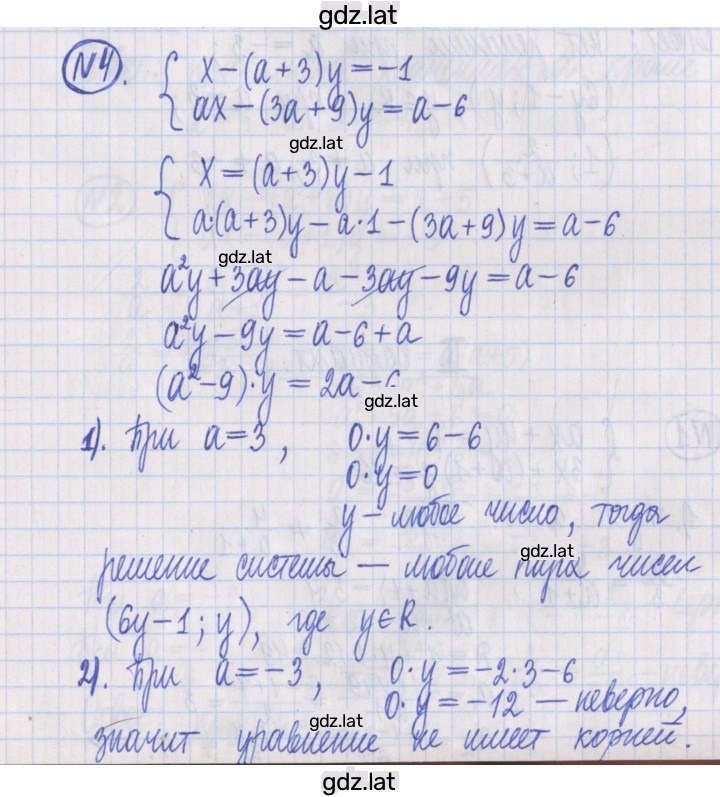 gdz.lat
№4. { x-(a+3)y=-1
ax-(3a+9)y=a-6
gdz.lat
{ x=(a+3)y-1
a·(a+3)y-a·1-(3a+9)y=a-6
gdz.lat
a²y+3ay-a-3ay-9y=a-6
a²y-9y=a-6+a
(a²-9)·y=2a-6
gdz.lat
1). При a=3, 0·y=6-6
0·y=0
y-любое число, тогда
gdz.lat
решение системы — любые пара чисел
(6y-1; y), где y∈R.
2). При a=-3, 0·y=-2·3-6
0·y=-12 — неверно,
gdz.lat
значит уравнение не имеет корней.
gdz.lat